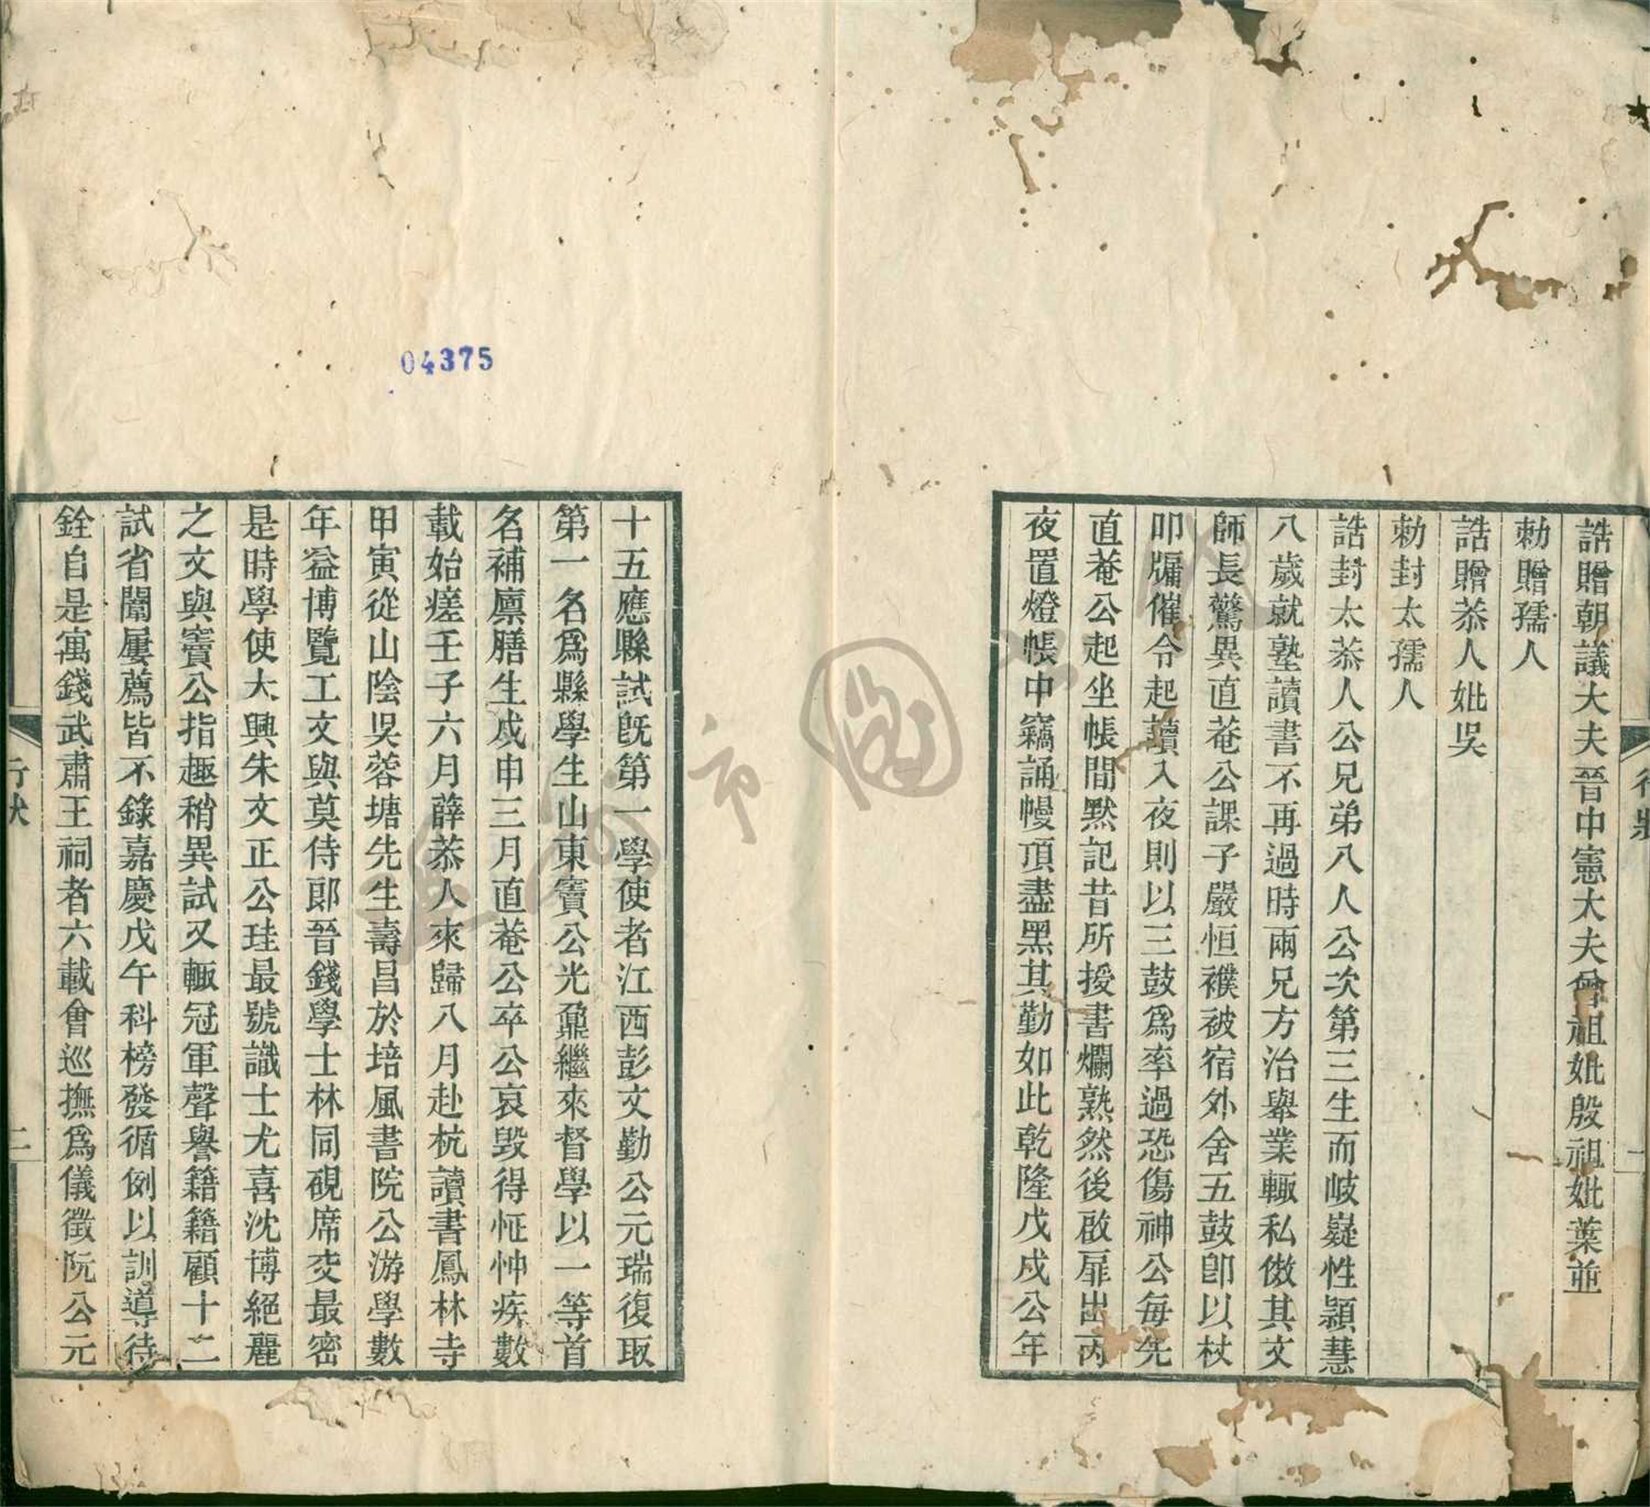 誥贈朝議大夫晉中憲大夫曾祖妣殷祖妣葉並
勅贈孺人
誥贈恭人妣吳
勅封太孺人
誥封太恭人公兄弟八人公次第三生而岐嶷性穎慧
八歲就塾讀書不再過時兩兄方治舉業輒私傚其文
師長驚異直菴公課子嚴恒襆被宿外舍五鼓卽以杖
叩牖催令起讀入夜則以三鼓爲率過恐傷神公每先
直菴公起坐帳間默記昔所授書爛熟然後啟扉出丙
夜置燈帳中竊誦幔頂盡黑其勤如此乾隆戊戌公年
行狀
一
十五應縣試旣第一學使者江西彭文勤公元瑞復取
第一名爲縣學生山東竇公光鼐繼來督學以一等首
名補廩膳生戊申三月直菴公卒公哀毀得怔忡疾數
載始瘥壬子六月薛恭人來歸八月赴杭讀書鳳林寺
甲寅從山陰吳蓉塘先生壽昌於培風書院公游學數
年益博覽工文與莫侍郎晉錢學士林同硯席交最密
是時學使大興朱文正公珪最號識士尤喜沈博絕麗
之文與竇公指趣稍異試又輒冠軍聲譽籍籍顧十二
試省闈屢薦皆不錄嘉慶戊午科榜發循例以訓導待
銓自是寓錢武肅王祠者六載會巡撫爲儀徵阮公元
行狀
二
04375
市
圖